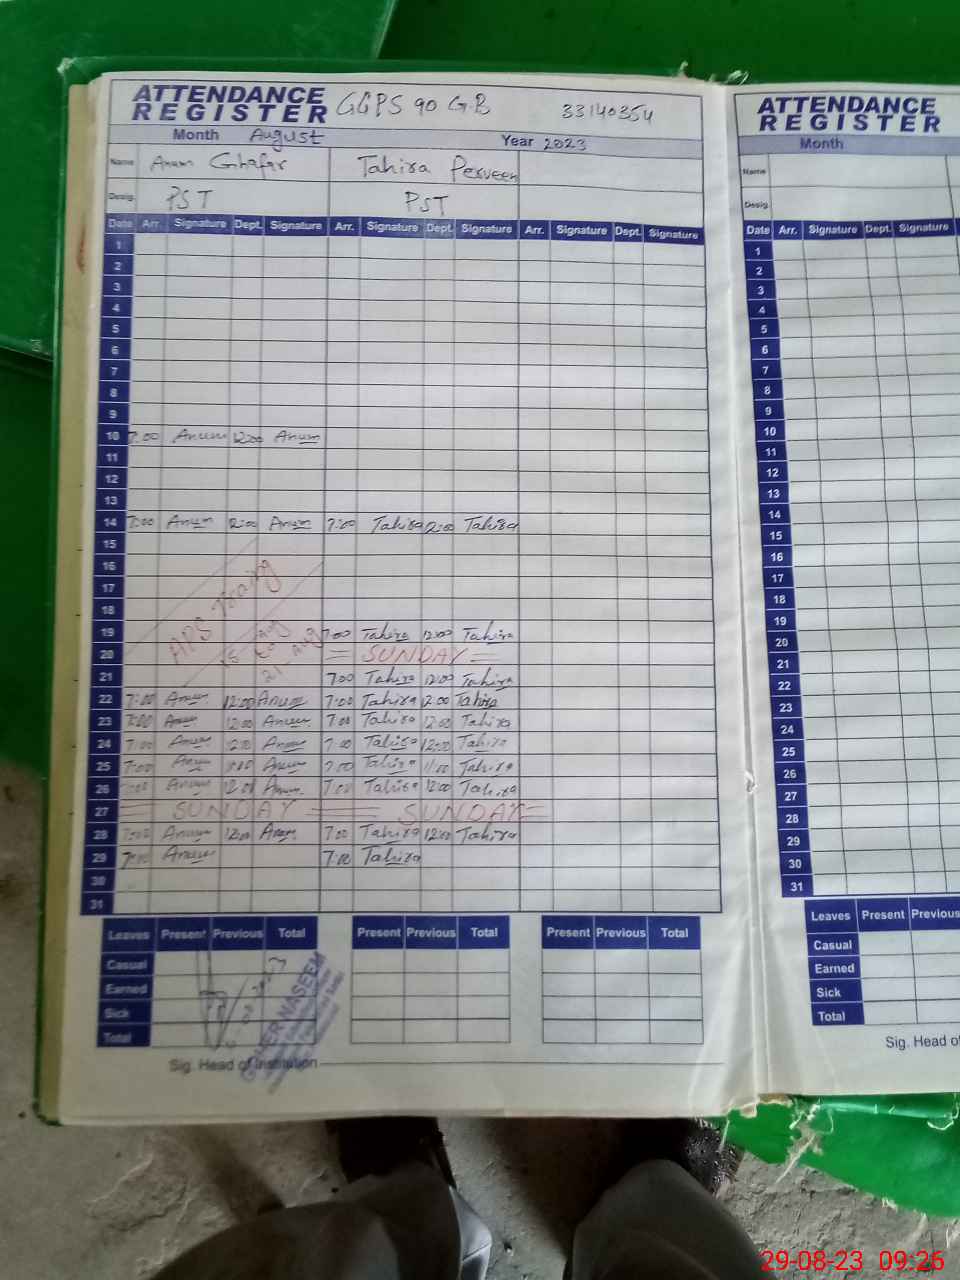 ATTENDANCE REGISTER GGPS 90 G.B 33140354
Month August Year 2023
Name Anum Ghafar Tahira Perveen
Desig. PST PST
Date Arr. Signature Dept. Signature Arr. Signature Dept. Signature Arr. Signature Dept. Signature
1
2
3
4
5
6
7
8
9
10 7:00 Anum 12:00 Anum
11
12
13
14 7:00 Anum 12:00 Anum 7:00 Tahira 12:00 Tahira
15
16
17
18
APS
19 7:00 Tahira 12:00 Tahira
20 SUNDAY
21 7:00 Tahira 12:00 Tahira
22 7:00 Anum 12:00 Anum 7:00 Tahira 12:00 Tahira
23 7:00 Anum 12:00 Anum 7:00 Tahira 12:00 Tahira
24 7:00 Anum 12:00 Anum 7:00 Tahira 12:00 Tahira
25 7:00 Anum Anum 7:00 Tahira 11:00 Tahira
26 7:00 Anum 12:00 Anum 7:00 Tahira 12:00 Tahira
27 SUNDAY SUNDAY
28 7:00 Anum 12:00 Anum 7:00 Tahira 12:00 Tahira
29 7:00 Anum 7:00 Tahira
30
31
Leaves Present Previous Total Present Previous Total Present Previous Total
Casual
Earned
Sick
Total
NASEEM
Sig. Head of Institution
ATTENDANCE REGISTER
Month
Name
Desig.
Date Arr. Signature Dept. Signature
1
2
3
4
5
6
7
8
9
10
11
12
13
14
15
16
17
18
19
20
21
22
23
24
25
26
27
28
29
30
31
Leaves Present Previous
Casual
Earned
Sick
Total
Sig. Head of
29-08-23 09:26